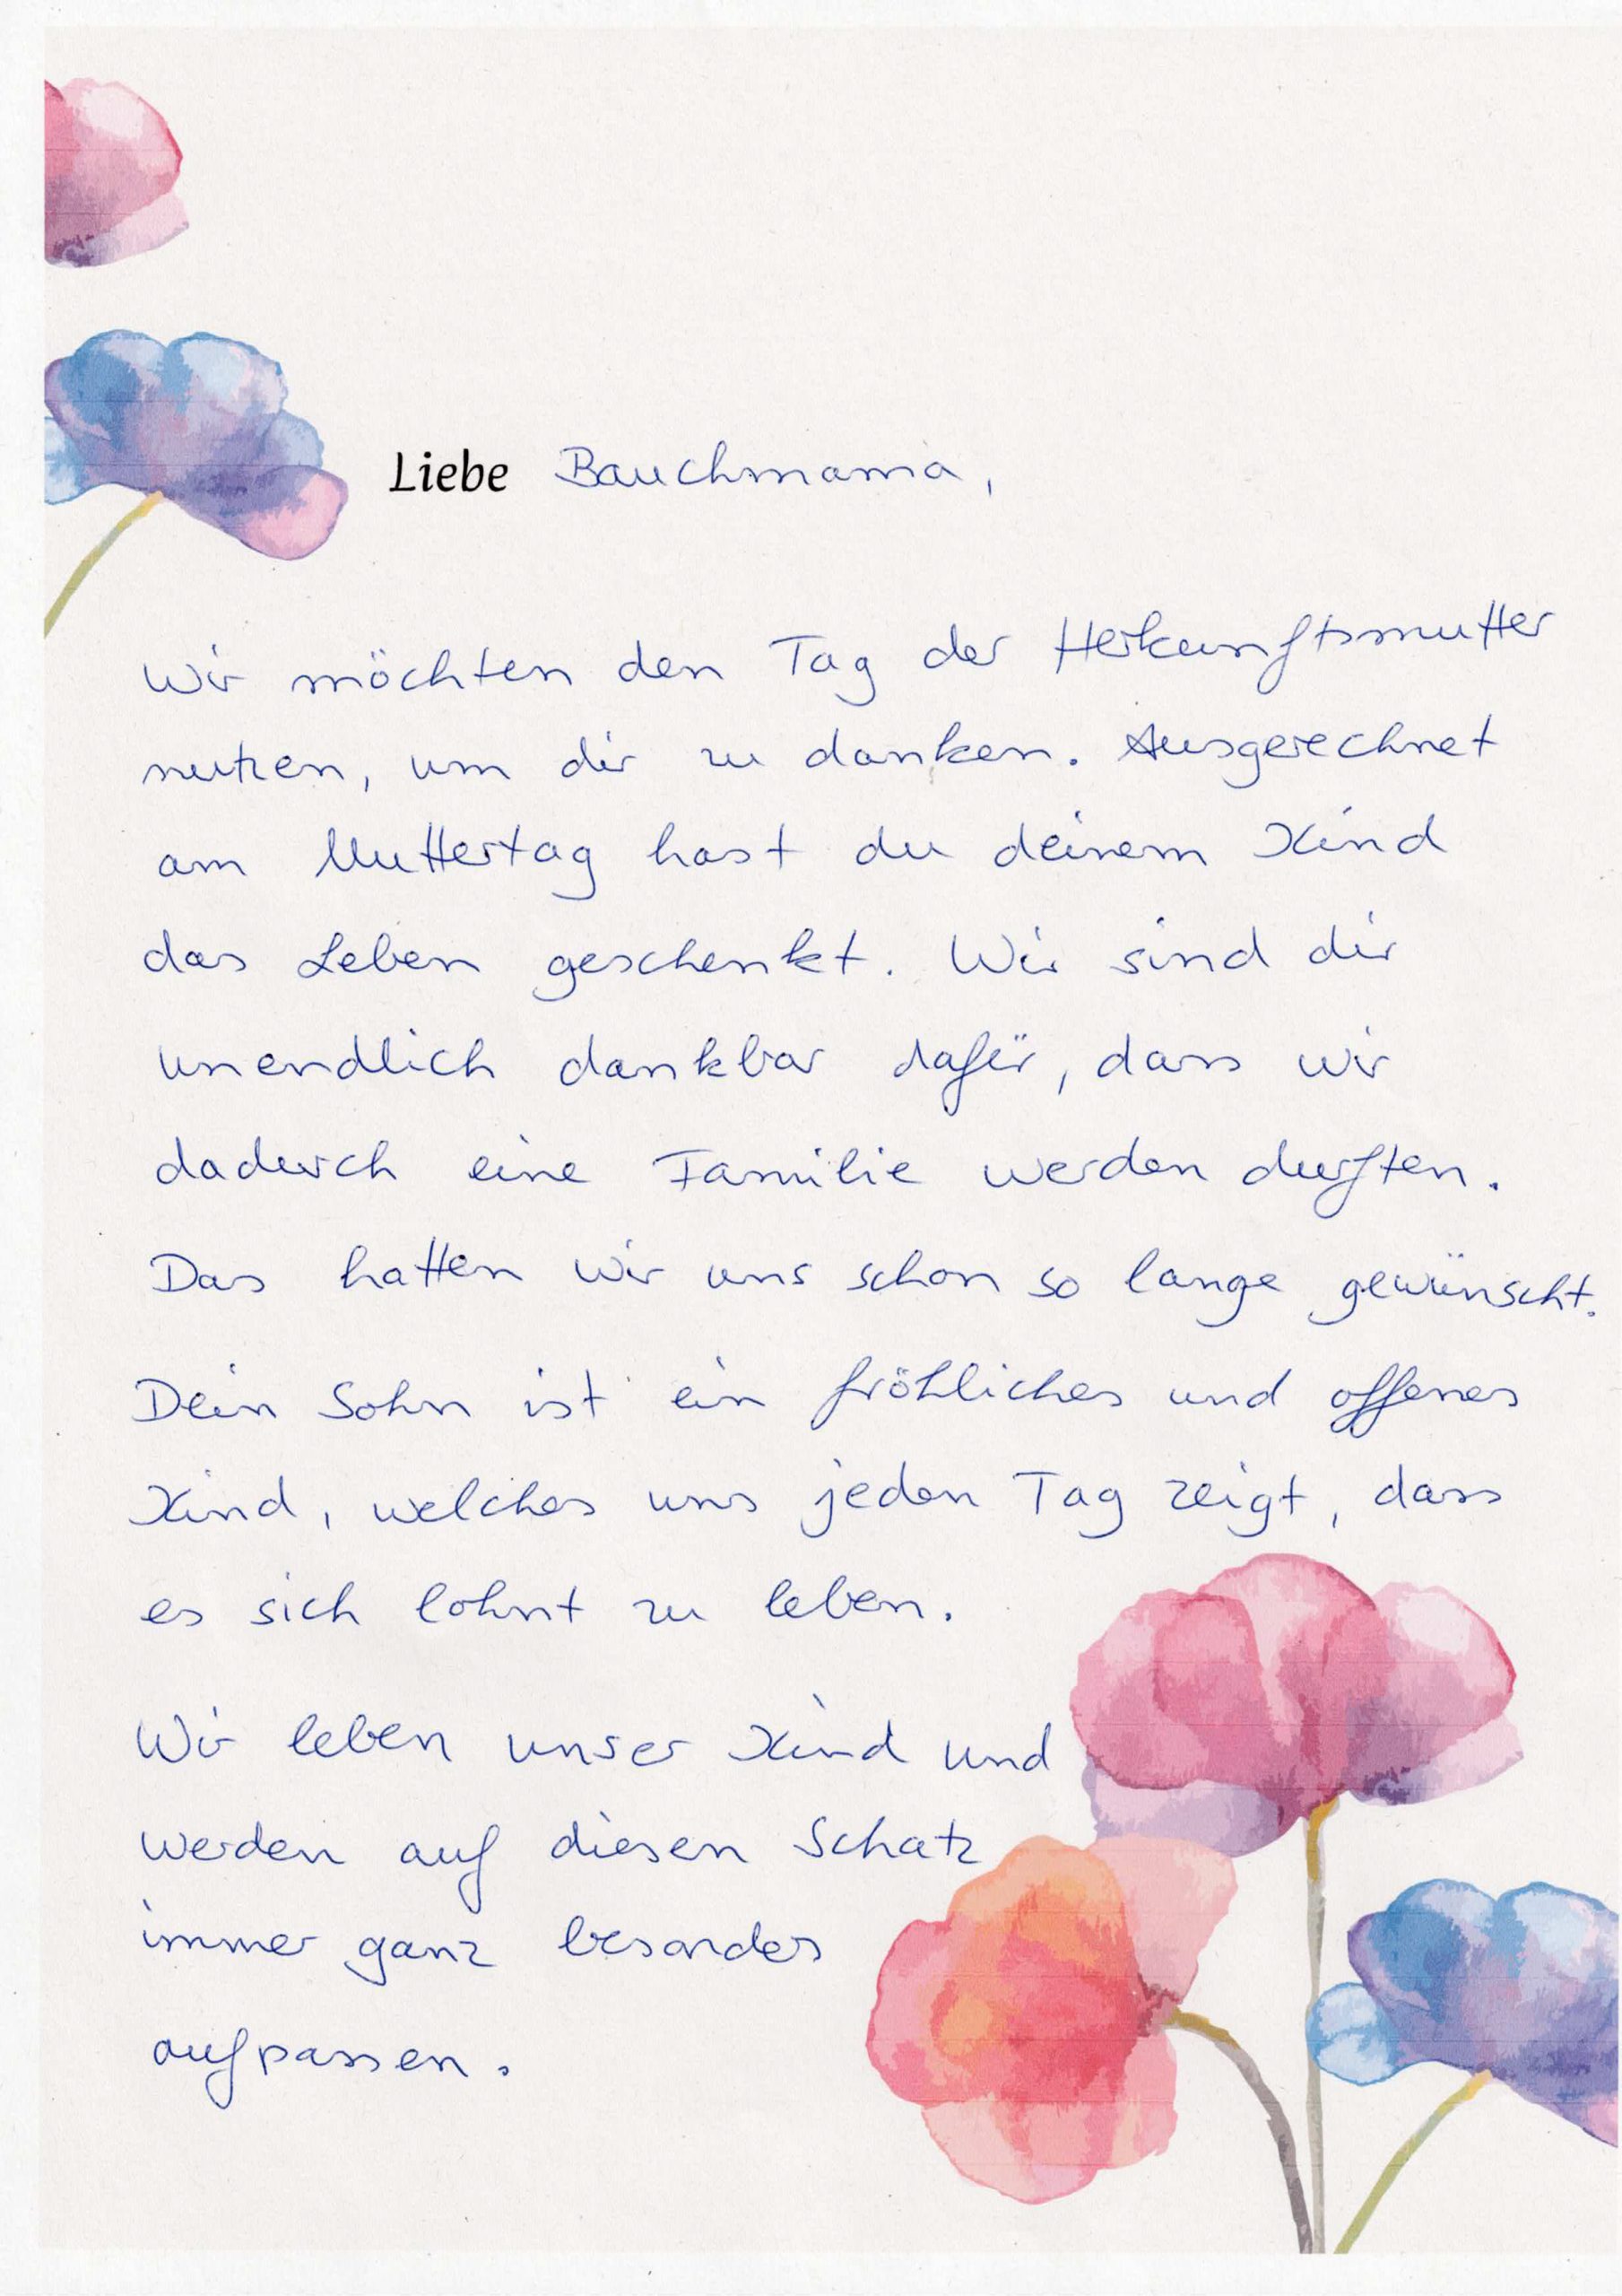 Liebe Bauchmama,
Wir möchten den Tag der Herkunftsmutter
nutzen, um dir zu danken. Ausgerechnet
am Muttertag hast du deinem Kind
das Leben geschenkt. Wir sind dir
unendlich dankbar dafür, dass wir
dadurch eine Familie werden durften.
Das hatten wir uns schon so lange gewünscht.
Dein Sohn ist ein fröhliches und offenes
Kind, welches uns jeden Tag zeigt, dass
es sich lohnt zu leben.
Wir leben unser Kind und
werden auf diesen Schatz
immer ganz besonders
aufpassen.